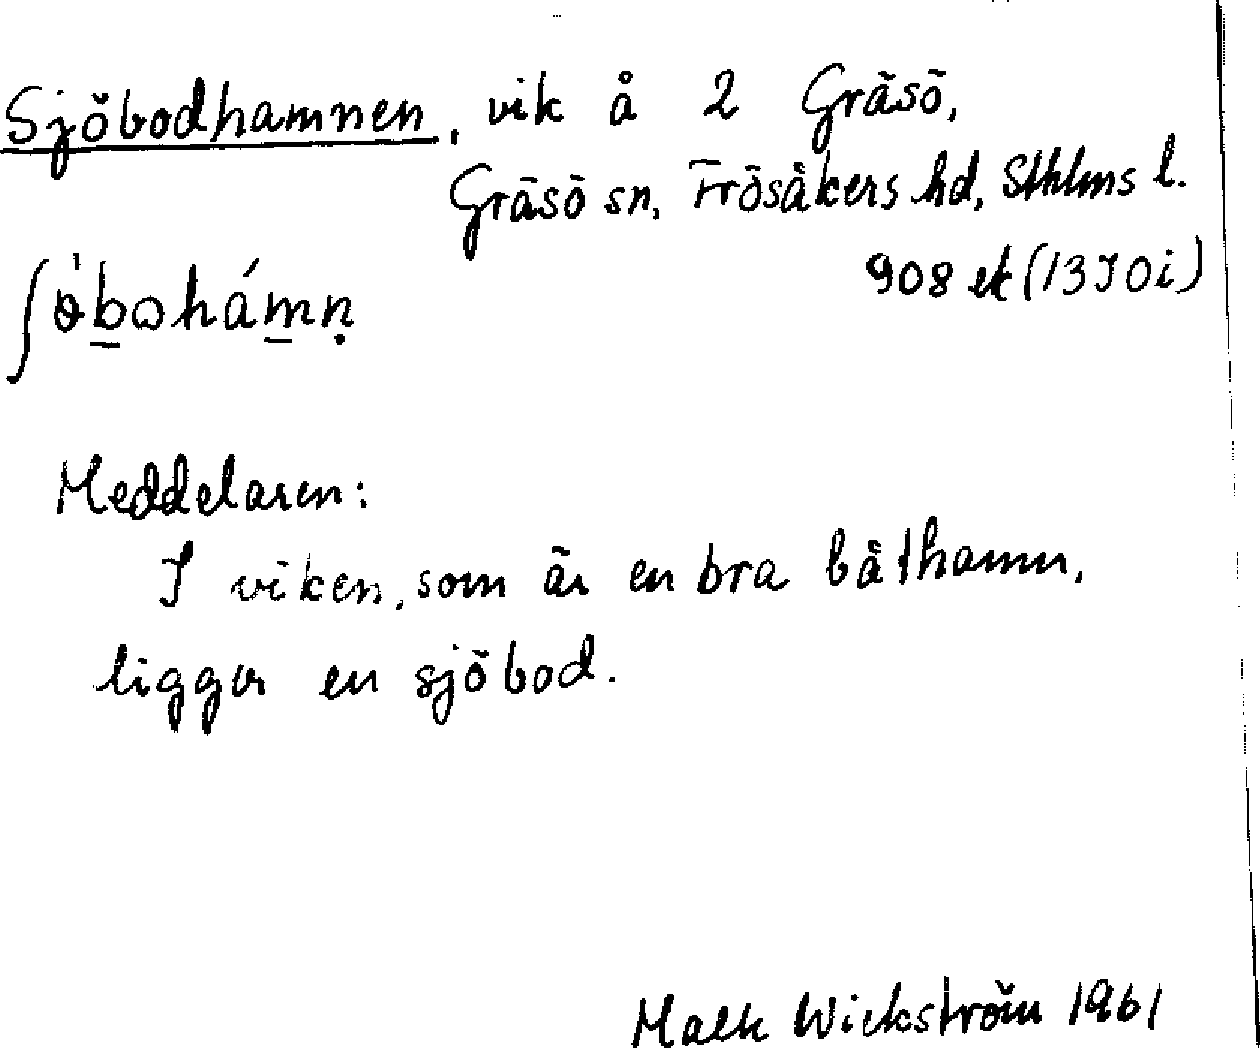 Sjöbodhamnen, vik å 2 Gräsö,
Gräsö sn, Frösåkers hd, Sthlms l.
908 ek (13I0i)
ʃòbohámṇ
Meddelaren:
I viken, som är en bra båthamn,
ligger en sjöbod.
Wickström 1961